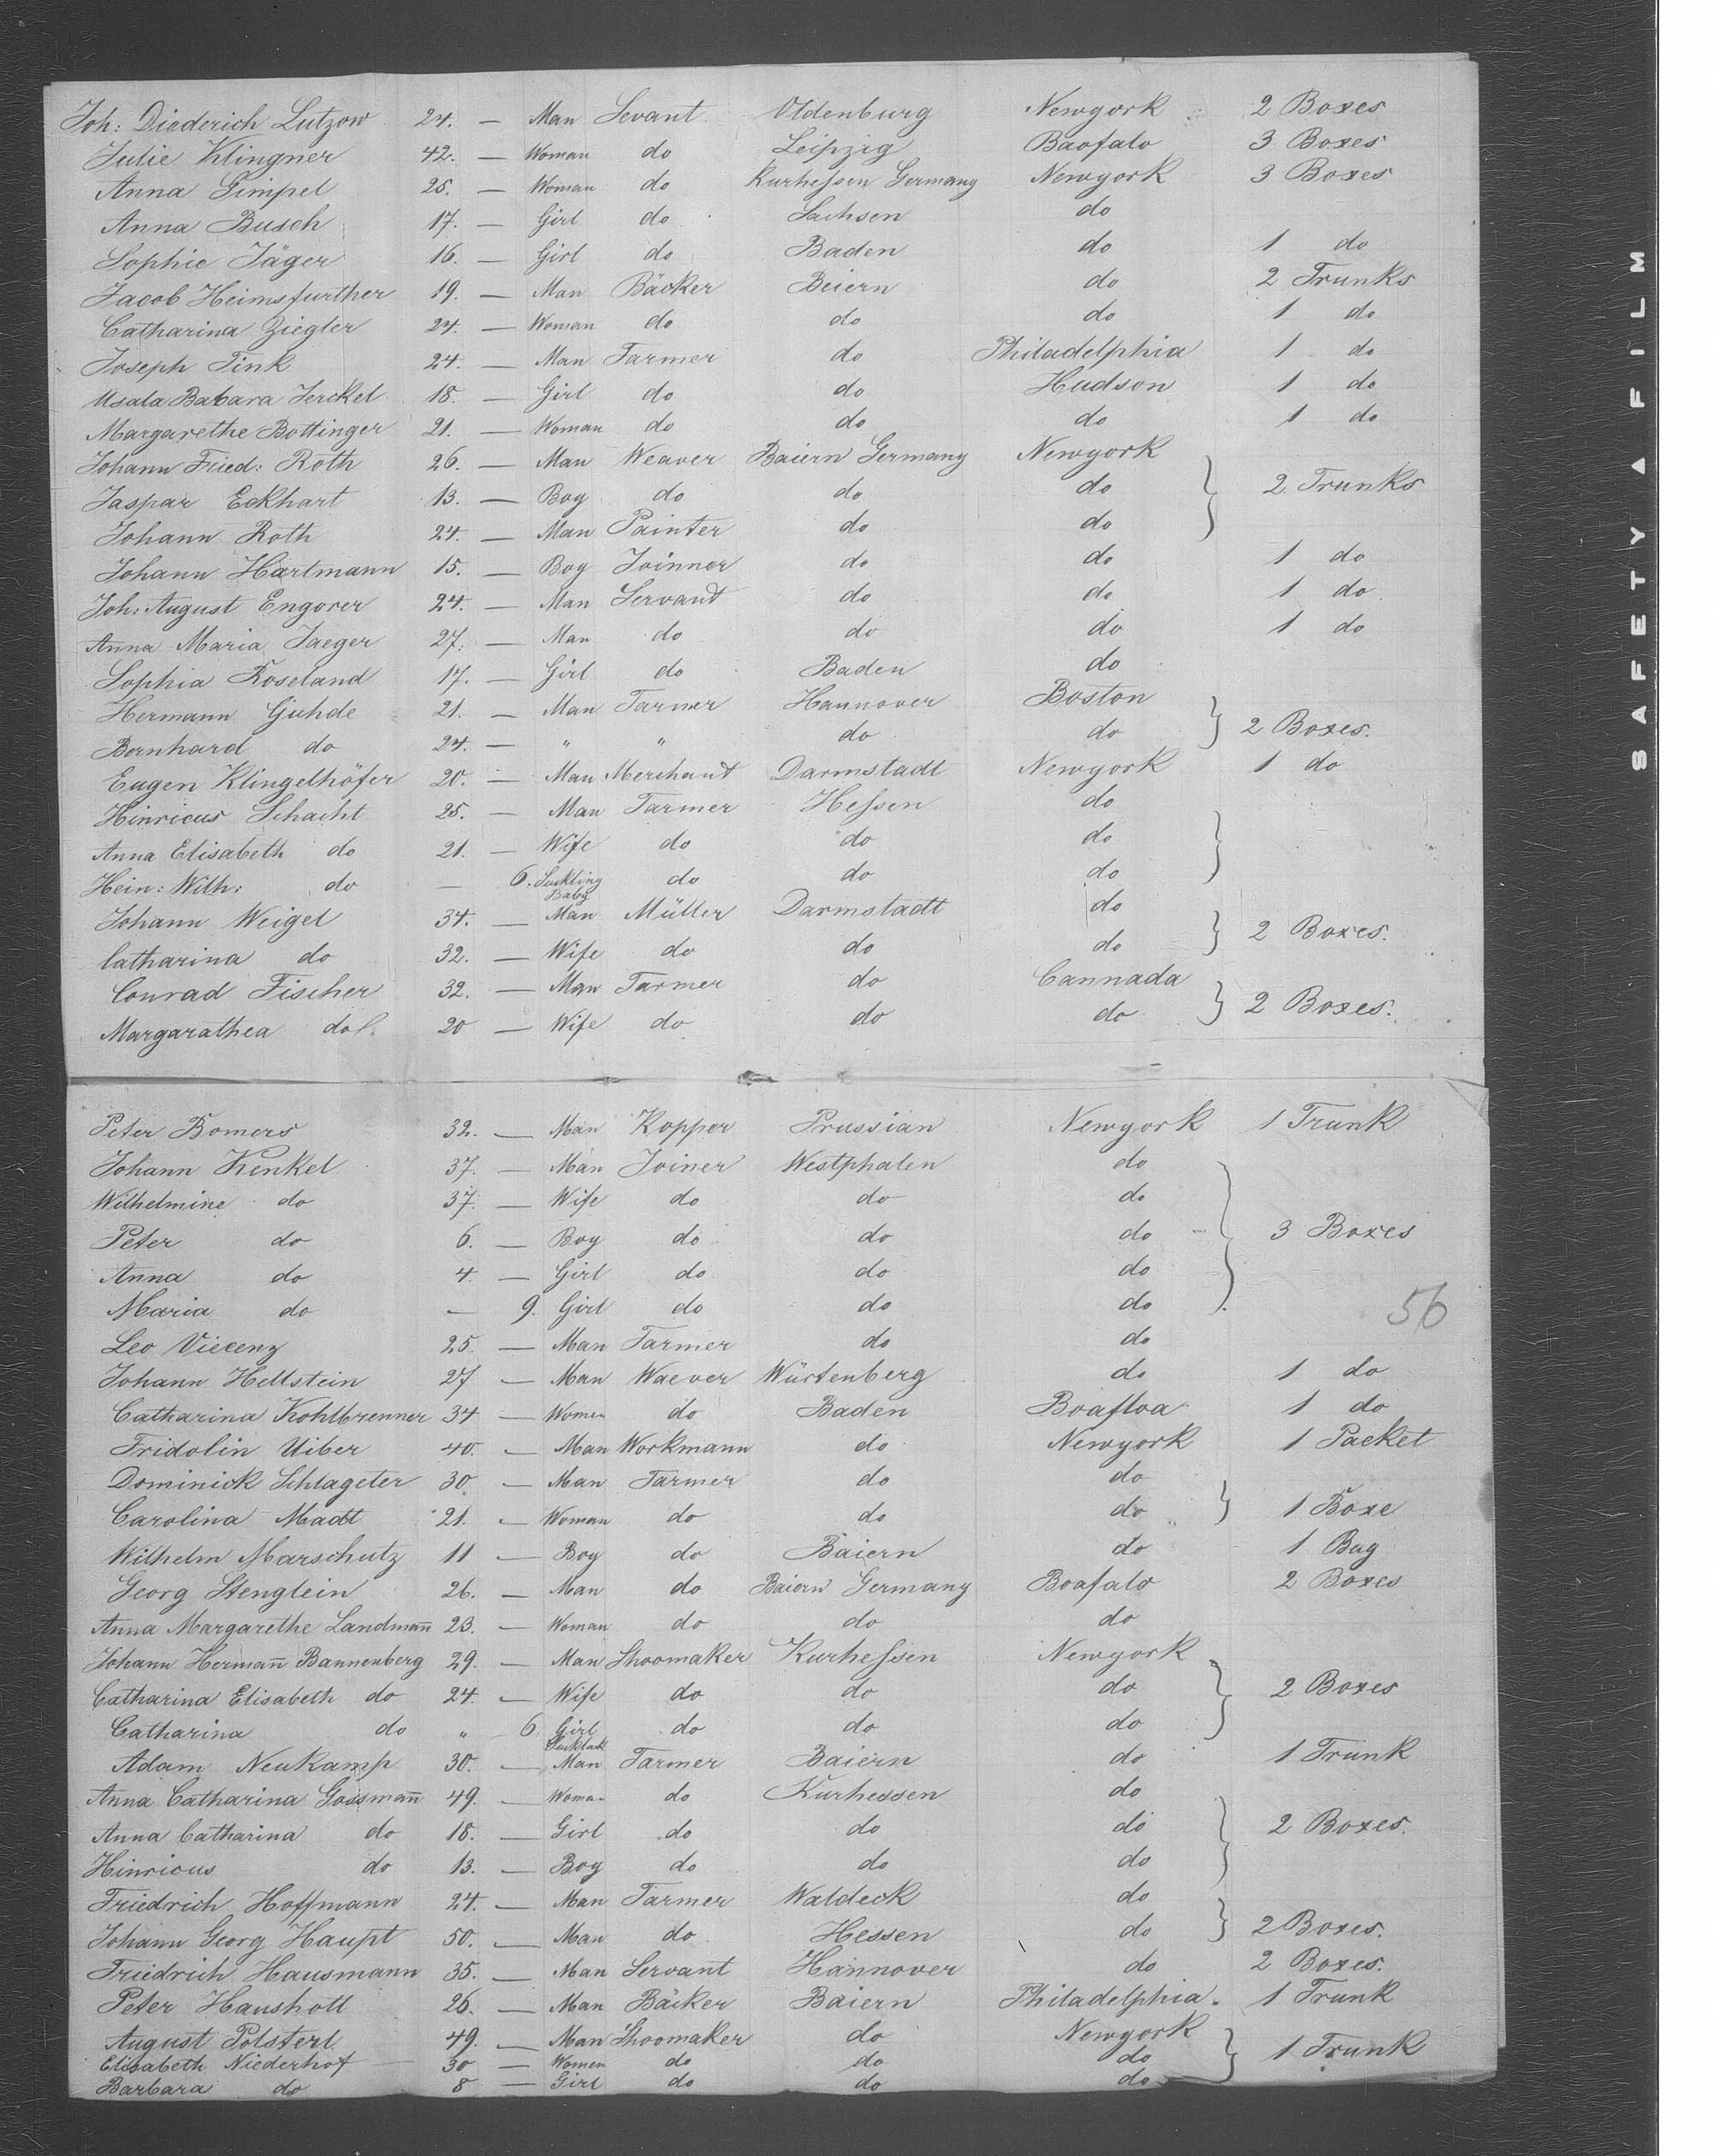 Joh: Diederich Lutzow 24. — Man Sevant Oldenburg Newyork 2 Boxes
Julie Klingner 42. — Woman do Leipzig Baofalo 3 Boxes
Anna Gimpel 25. — Woman do Kurhessen Germany Newyork 3 Boxes
Anna Busch 17. — Girl do Sachsen do
Sophie Jäger 16. — Girl do Baden do 1 do
Jacob Heimsfurther 19. — Man Bäcker Beiern do 2 Trunks
Catharina Ziegler 24. — Woman do do do 1 do
Joseph Fink 24. — Man Farmer do Philadelphia 1 do
Babara 18. — Girl do do Hudson 1 do
Margarethe Bottinger 21. — Woman do do do 1 do
Johann Fried: Roth 26. — Man Weaver Baiern Germany Newyork
Jaspar Eckhart 13. — Boy do do do 2 Trunks
Johann Roth 24. — Man Painter do do
Johann Hartmann 15. — Boy Joinner do do 1 do
Joh: August Engorer 24. — Man Servant do do 1 do
Anna Maria Jaeger 27. — Man do do do 1 do
Sophia Roseland 17. — Girl do Baden do
Hermann Guhde 21. — Man Farmer Hannover Boston
Bernhard do 24. — " " do do 2 Boxes.
Eugen Klingelhöfer 20. — Man Merchant Darmstadt Newyork 1 do
Hinricus Schacht 25. — Man Farmer Hessen do
Anna Elisabeth do 21. — Wife do do do
Hein: Wilh: do — 6. Suckling Baby do do do
Johann Weigel 34. — Man Müller Darmstadt do
Catharina do 32. — Wife do do do 2 Boxes.
Conrad Fischer 32. — Man Farmer do Cannada
Margarathea do 20 — Wife do do do 2 Boxes.
Peter Bomers 32. — Man Kopper Prussian Newyork 1 Trunk
Johann Kenkel 37. — Man Joiner Westphalen do
Wilhelmine do 37. — Wife do do do
Peter do 6. — Boy do do do 3 Boxes
Anna do 4. — Girl do do do
Maria do — 9. Girl do do do
56
Leo Vicenz 25. — Man Farmer do do
Johann Hellstein 27 — Man Waever Würtenberg do 1 do
Catharina Kohlbrenner 34 — Women do Baden Boafloa 1 do
Fridolin Uiber 40. — Man Workmann do Newyork 1 Packet
Dominick Schlageter 30. — Man Farmer do do
Carolina Madt 21. — Woman do do do 1 Boxe
Wilhelm Marschutz 11 — Boy do Baiern do 1 Bag
Georg Stenglein 26. — Man do Baiern Germany Boafalo 2 Boxes
Anna Margarethe Landmañ 23. — Woman do do do
Johann Hermañ Bannenberg 29. — Man Shoomaker Kurhessen Newyork
Catharina Elisabeth do 24. — Wife do do do 2 Boxes
Catharina do " 6 Girl do do do
Adam Neukamp 30. — Man Farmer Baiern do 1 Trunk
Anna Catharina Gossmañ 49. — Woman do Kurhessen do
Anna Catharina do 18. — Girl do do do 2 Boxes.
Hinricus do 13. — Boy do do do
Friedrich Hoffmann 24. — Man Farmer Waldeck do
Johann Georg Haupt 50. — Man do Hessen do 2 Boxes.
Friedrich Hausmann 35. — Man Servant Hannover do 2 Boxes.
Peter Hausholl 26. — Man Bäcker Baiern Philadelphia. 1 Trunk
August Polsterl 49. — Man Shoomaker do Newyork
Elisabeth Niederhof 30 — Women do do do 1 Trunk
Barbara do 8 — Girl do do do
SAFETY A FILM